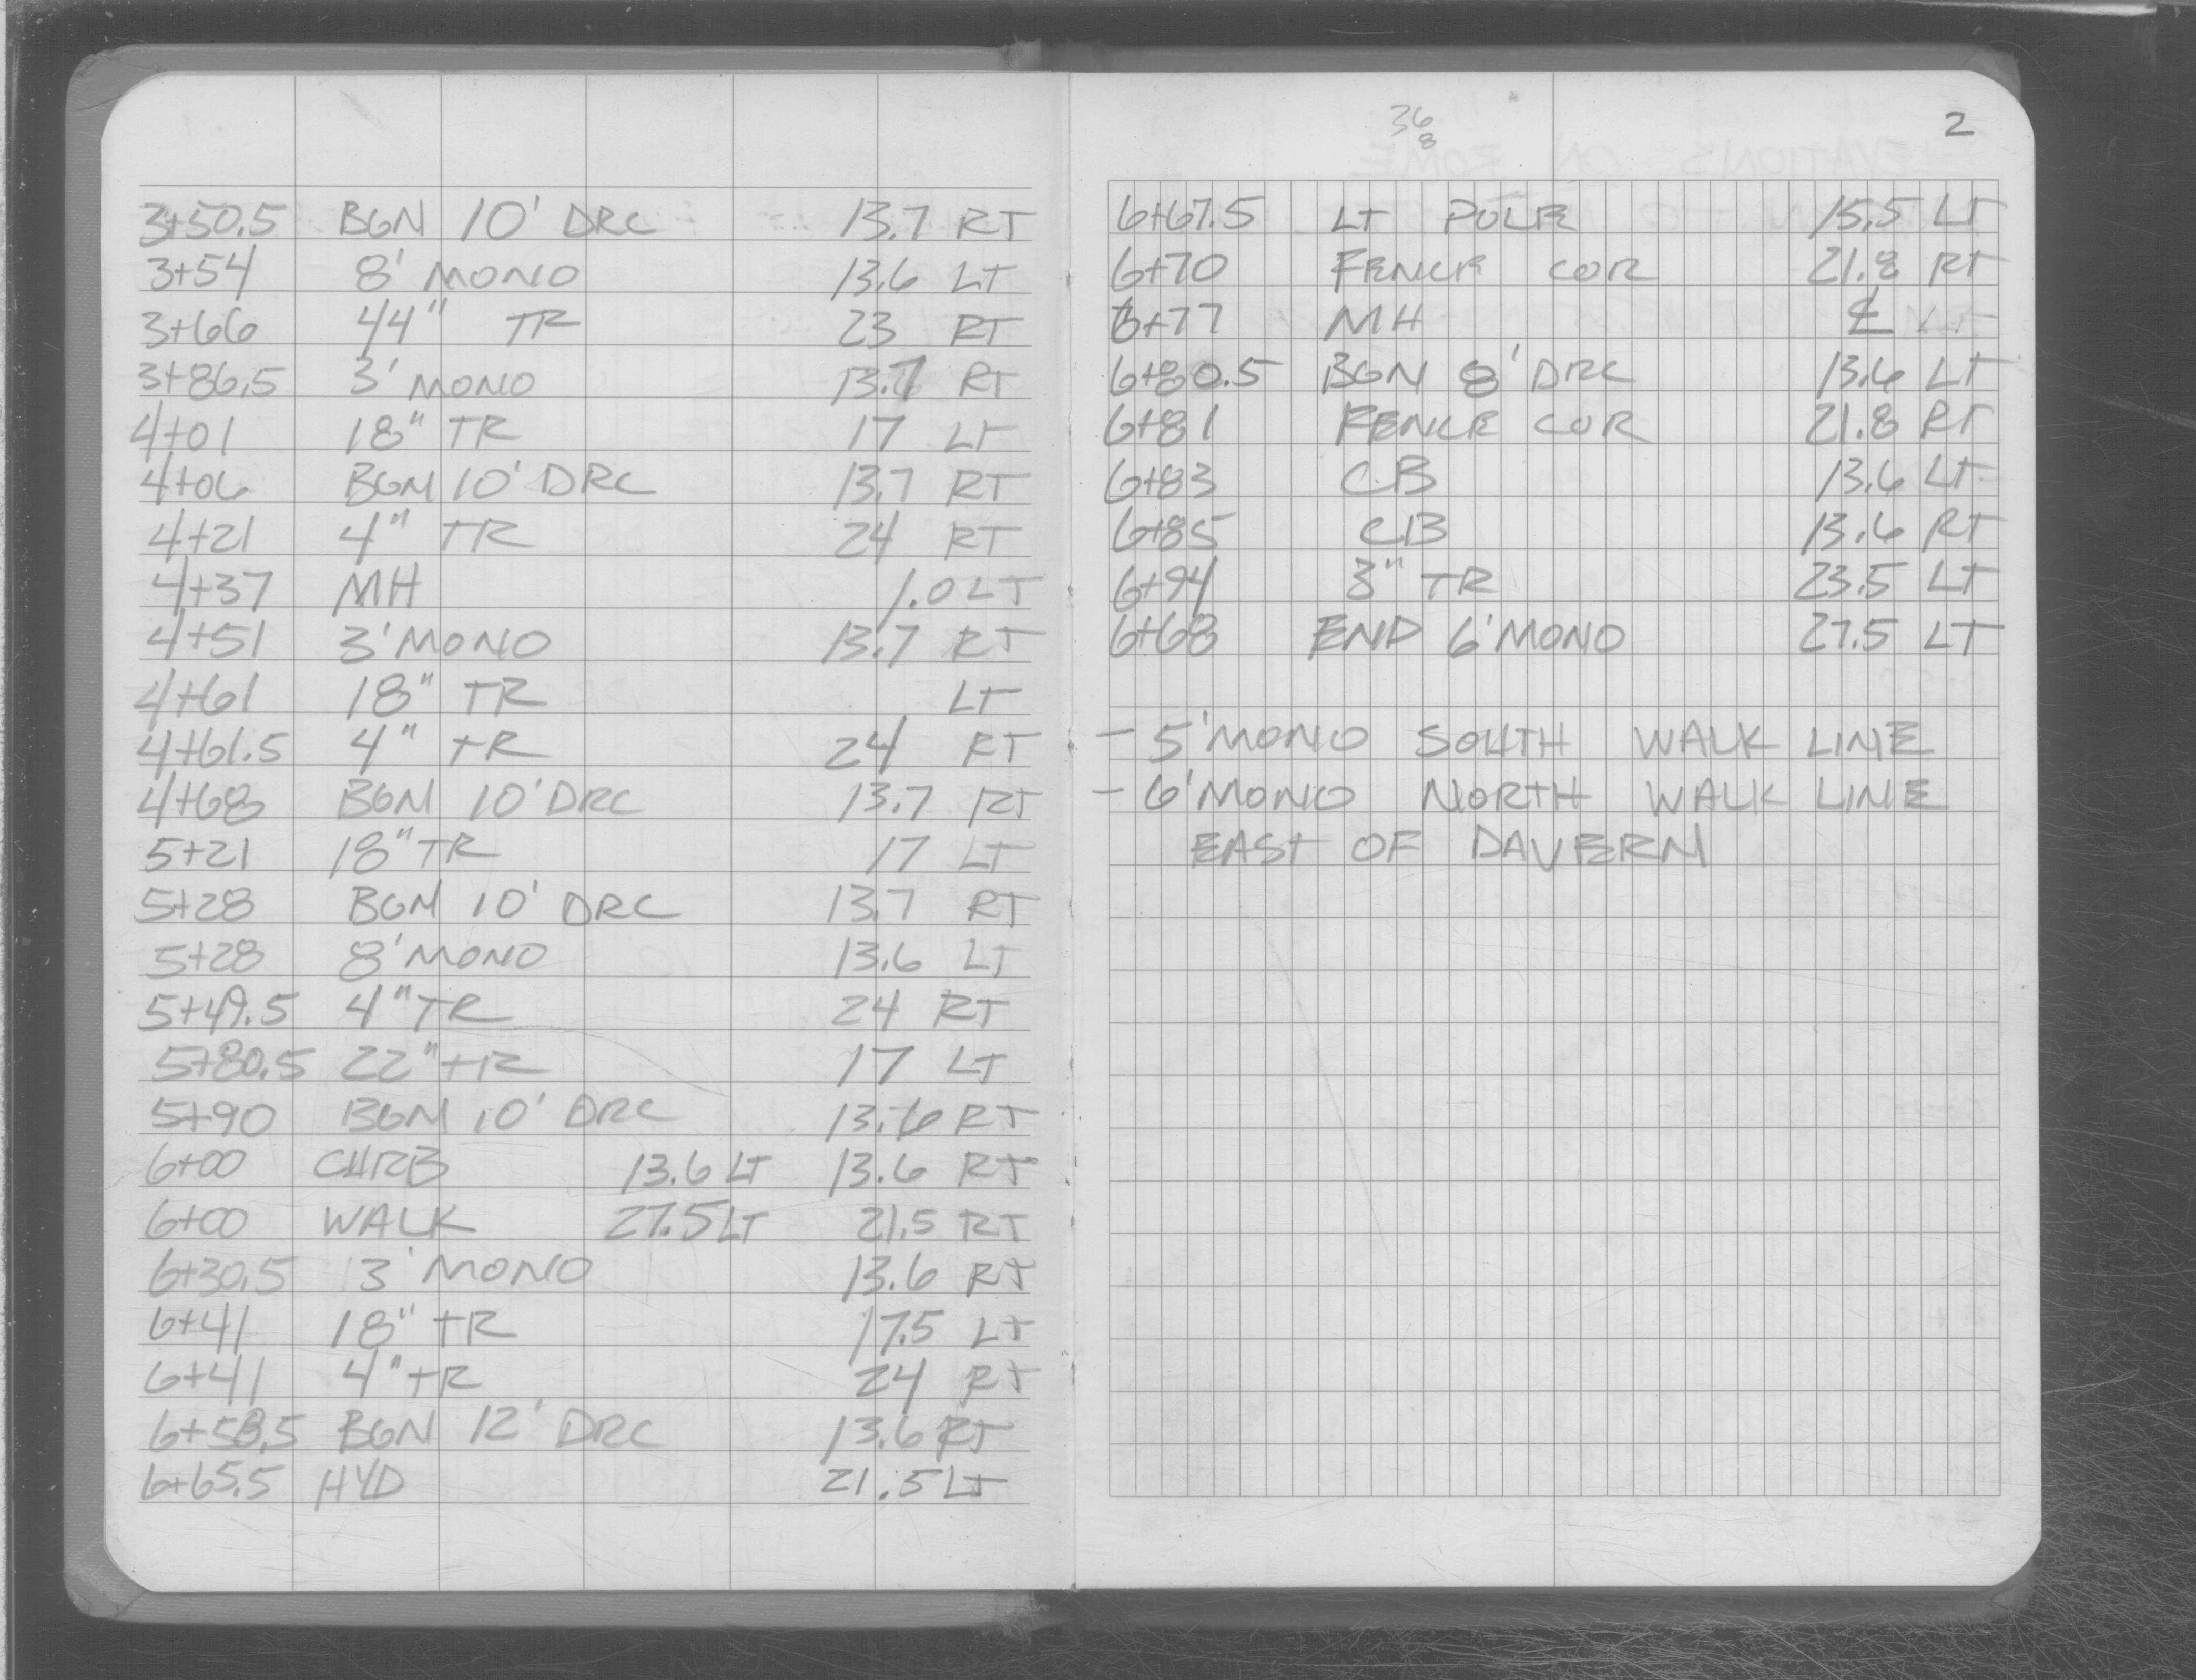 3+50.5 BGN 10' DRC 13.7 RT
3+54 8' MONO 13.6 LT
3+66 44" TR 23 RT
3+86.5 3' MONO 13.7 RT
4+01 18" TR 17 LT
4+06 BGN 10' DRC 13.7 RT
4+21 4" TR 24 RT
4+37 MH 1.0 LT
4+51 3' MONO 13.7 RT
4+61 18" TR LT
4+61.5 4" TR 24 RT
4+68 BGN 10' DRC 13.7 RT
5+21 18" TR 17 LT
5+28 BGN 10' DRC 13.7 RT
5+28 8' MONO 13.6 LT
5+49.5 4" TR 24 RT
5+80.5 22" TR 17 LT
5+90 BGN 10' DRC 13.6 RT
6+00 CURB 13.6 LT 13.6 RT
6+00 WALK 27.5 LT 21.5 RT
6+30.5 3' MONO 13.6 RT
6+41 18" TR 17.5 LT
6+41 4" TR 24 RT
6+58.5 BGN 12' DRC 13.6 RT
6+65.5 HYD 21.5 LT
36
8
2
6+67.5 LT POLE 15.5 LT
6+70 FENCE COR 21.8 RT
6+77 MH ℄
6+80.5 BGN 8' DRC 13.6 LT
6+81 FENCE COR 21.8 RT
6+83 CB 13.6 LT
6+85 CB 13.6 RT
6+94 3" TR 23.5 LT
6+68 END 6' MONO 27.5 LT
- 5' MONO SOUTH WALK LINE
- 6' MONO NORTH WALK LINE
EAST OF DAVERN